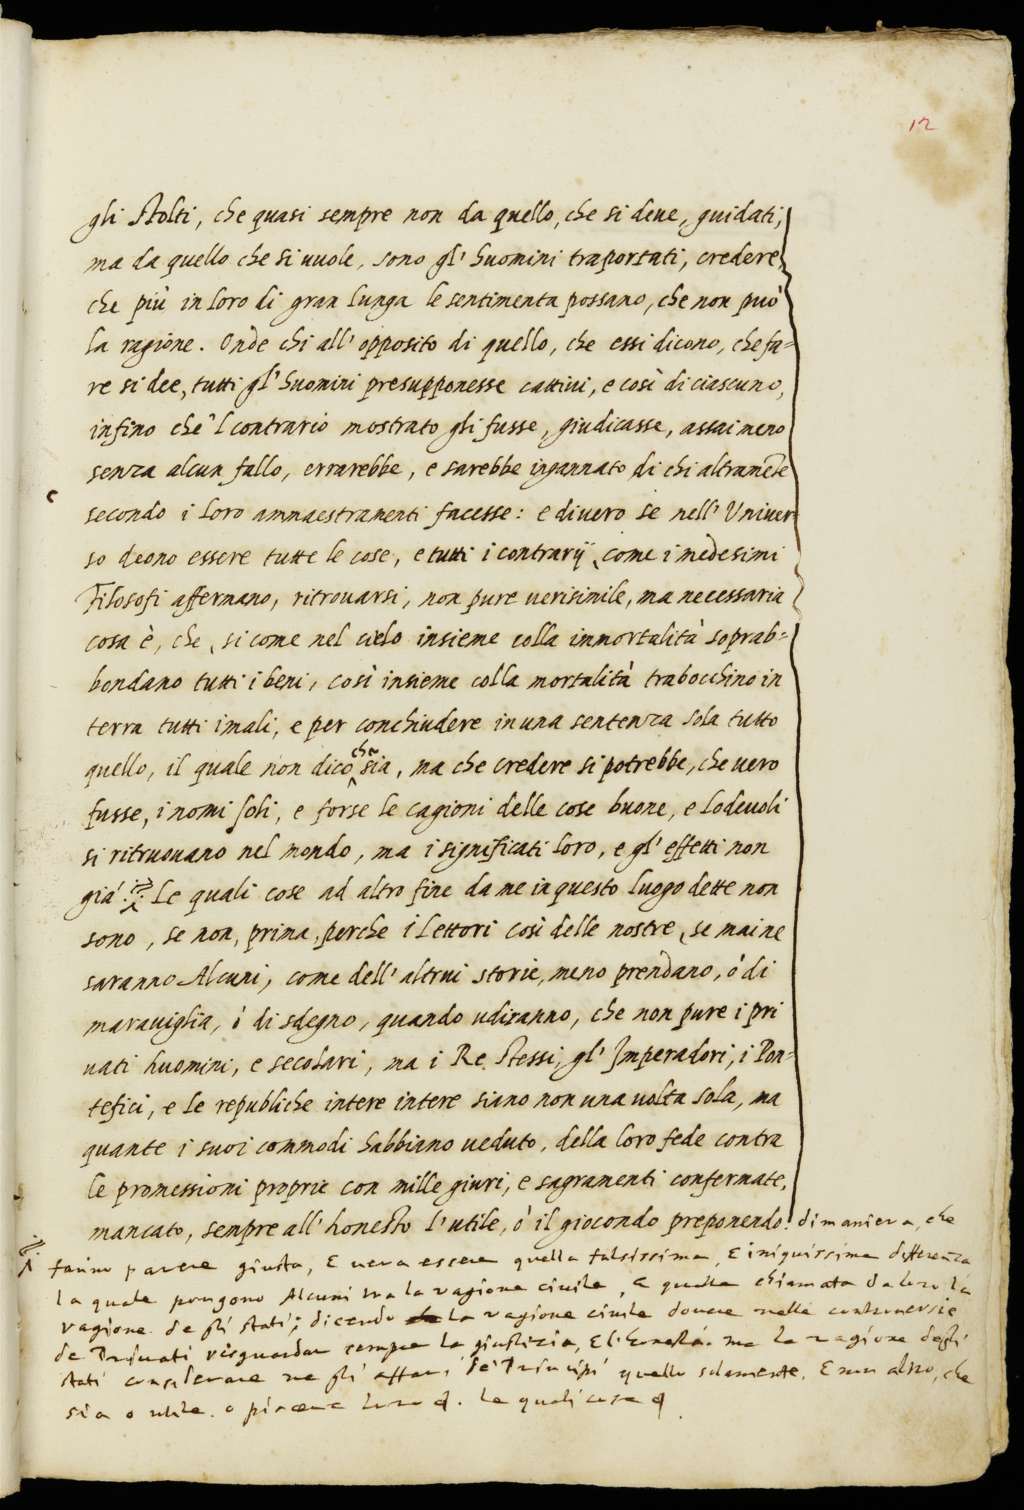 12
gli stolti, che quasi sempre non da quello, che si deue, guidati,
ma da quello che si uuole, sono gl' huomini traportati, credere,
che più in loro di gran lunga le sentimenta possano, che non può
la ragione. Onde chi all' opposito di quello, che essi dicono, che fa=
re si dee, tutti gl' huomini presupponesse cattiui, e così di ciascuno,
infino che 'l contrario mostrato gli fusse, giudicasse, assai meno
senza alcun fallo, errarebbe, e sarebbe ingannato di chi altramēte
secondo i loro ammaestramenti facesse: e di uero se nell' Uniuer
so deono essere tutte le cose, e tutti i contrarij, come i medesimi
Filosofi affermano, ritrouarsi, non pure uerisimile, ma necessaria
cosa è, che, si come nel cielo insieme colla immortalità soprab=
bondano tutti i beni, così insieme colla mortalità trabocchino in
terra tutti i mali, e per conchiudere in una sentenza sola tutto
quello, il quale non dico che sia, ma che credere si potrebbe, che uero
fusse, i nomi soli, e forse le cagioni delle cose buone, e lodeuoli
si ritruouano nel mondo, ma i significati loro, e gl' effetti non
già. Le quali cose ad altro fine da me in questo luogo dette non
sono, se non, prima, perche i lettori così delle nostre, se mai ne
saranno Alcuni, come dell' altrui storie, meno prendano, ò di
marauiglia, ò di sdegno, quando udiranno, che non pure i pri
uati huomini, e secolari, ma i Re stessi, gl' Imperadori, i Pon=
tefici, e le republiche intere intere siano non una uolta sola, ma
quante i suoi commodi habbiano ueduto, della loro fede contra
le promessioni proprie con mille giuri, e sagramenti confermate,
mancato, sempre all' honesto l' utile, ò il giocondo preponendo: di maniera, che
fanno parere giusta, E uera essere quella falsissima, E iniquissima differenza
la quale pongono Alcuni tra la ragione ciuile, e quella chiamata da loro la
ragione degli stati; dicendo la ragione ciuile douere nelle controuersie
de Priuati risguardar sempre la giustizia, E l'honestà. ma la ragione degli
stati considerare ne gli affari de' Principi quello solamente, E non altro, che
sia o utile, o piaccia loro. Le quali cose